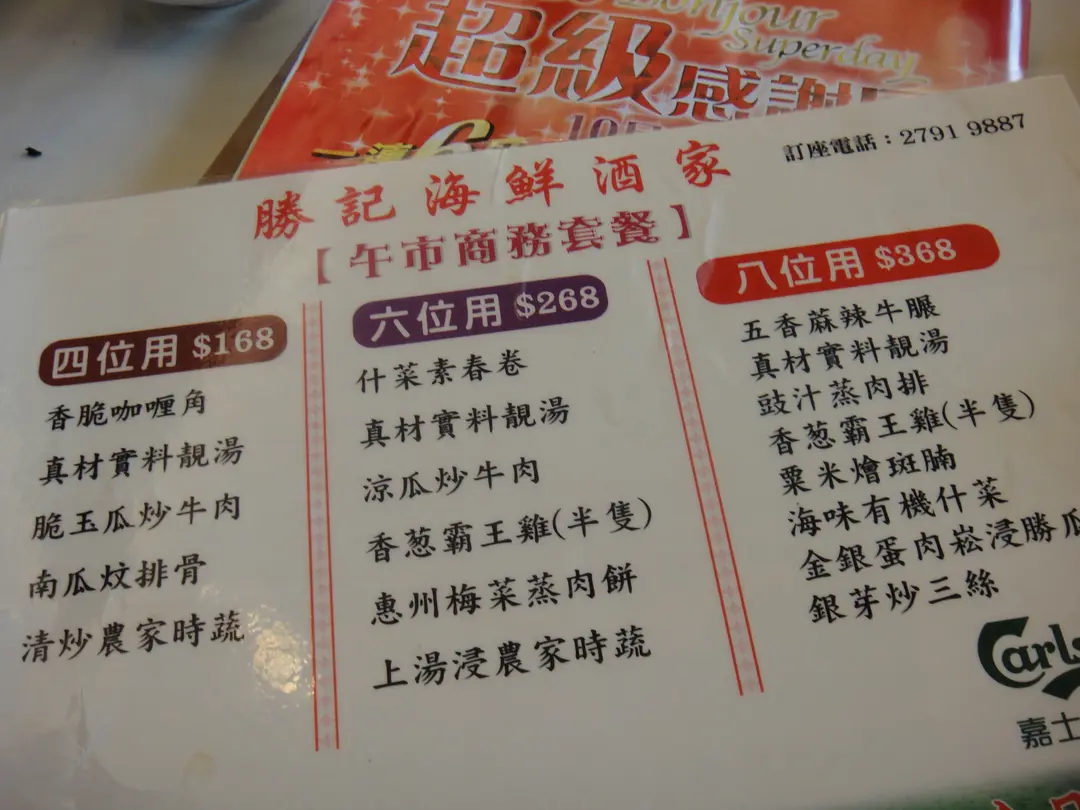 Bonjour
Superday
超級感謝
訂座電話：2791 9887
勝記海鮮酒家
【午市商務套餐】
四位用 $168
香脆咖喱角
真材實料靚湯
脆玉瓜炒牛肉
南瓜炆排骨
清炒農家時蔬
六位用 $268
什菜素春卷
真材實料靚湯
涼瓜炒牛肉
香葱霸王雞(半隻)
惠州梅菜蒸肉餅
上湯浸農家時蔬
八位用 $368
五香蔴辣牛𦟌
真材實料靚湯
豉汁蒸肉排
香葱霸王雞(半隻)
粟米燴斑腩
海味有機什菜
金銀蛋肉崧浸勝瓜
銀芽炒三絲
Carls
嘉士